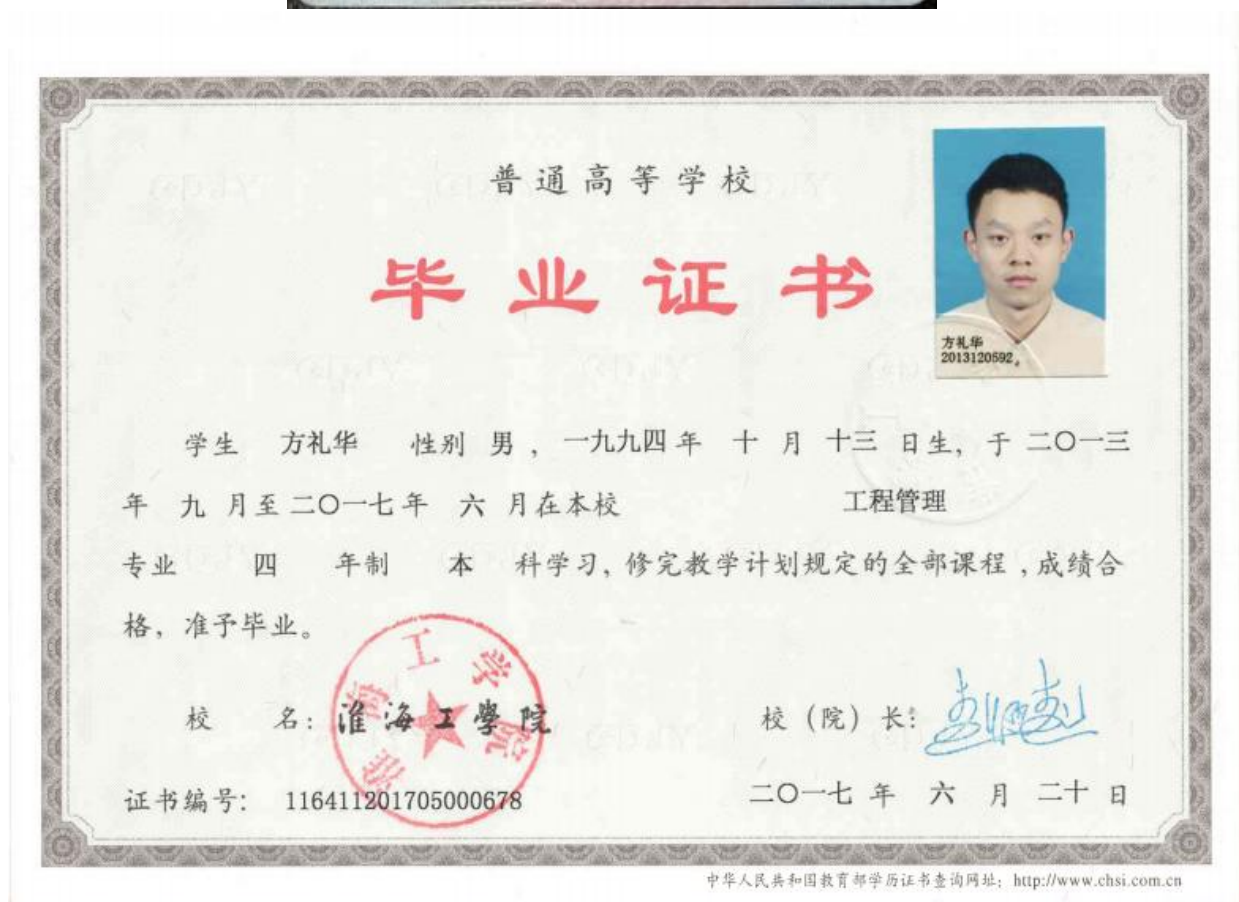 普通高等学校
毕业证书
方礼华
2013120592。
学生 方礼华 性别 男，一九九四年 十 月 十三 日生，于 二〇一三
年 九 月至 二〇一七年 六 月在本校 工程管理
专业 四 年制 本 科学习，修完教学计划规定的全部课程，成绩合
格，准予毕业。
淮海工学院
校 名：淮海工學院 校（院）长：
证书编号： 116411201705000678 二〇一七 年 六 月 二十 日
中华人民共和国教育部学历证书查询网址：http://www.chsi.com.cn